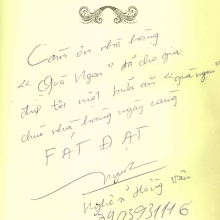 Cảm ơn nhà hàng
« Quá Ngon » đã cho gia
đình tôi một bữa ăn « quá ngon »
chúc nhà hàng ngày càng
FAT ĐẠT
Nghệ sĩ Hồng Vân
0903931116